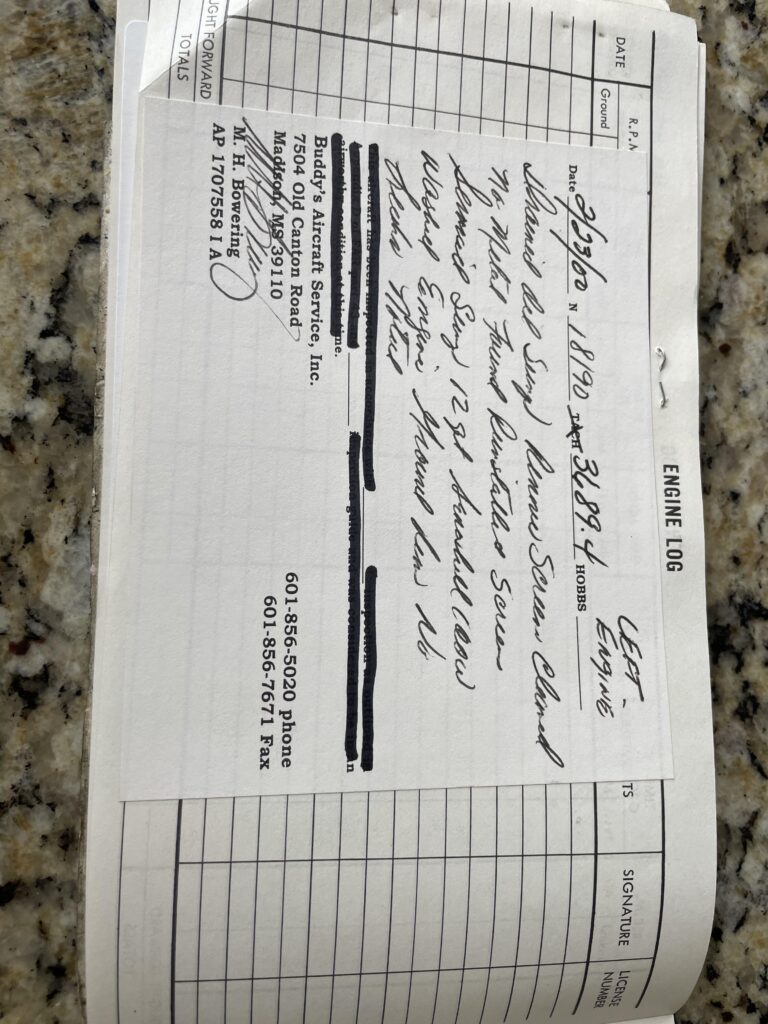 ENGINE LOG
DATE
R.P.M
Ground
TS
SIGNATURE
LICENSE NUMBER
LEFT - ENGINE
Date 2/23/00 N 18190 TACH 3689.4 HOBBS
Drained Oil Sump Remove Screen Cleaned
No Metal Found Reinstalled Screen
Sump 12 qt Aeroshell 100W
Washed Engine Ground Run No
Leaks Noted
Buddy's Aircraft Service, Inc.
7504 Old Canton Road
Madison, MS 39110
M. H. Bowering
AP 1707558 I A
601-856-5020 phone
601-856-7671 Fax
UGHT FORWARD
TOTALS